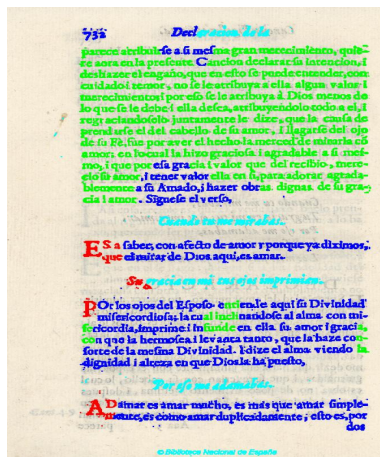 732 Declaracion de la
parece atribuirse a si mesma gran merecimiento, quie-
re aora en la presente Cancion declarar su intencion, i
deshazer el engaño, que en esto se puede entender, con
cuidado i temor, no se le atribuya a ella algun valor i
merecimiento; i por eso se le atribuya a Dios menos de
lo que se le debe i ella desea, atribuyendolo todo a el, i
regraciandoselo juntamente le dize, que la causa de
prendarse el del cabello de su amor, i llagarse del ojo
de su Fé, fue por aver el hecho la merced de mirarla có
amor: en lo cual la hizo graciosa i agradable a si mes-
mo, i que por esa gracia i valor que del recibio, mere-
cio su amor, i tener valor ella en si, para adorar agrada-
blemente a su Amado, i hazer obras dignas de su gra-
cia i amor. Siguese el verso,
Cuando tu me mirabas.
ES a saber, con afecto de amor, porque ya diximos,
que el mirar de Dios aqui, es amar.
Su gracia en mi tus ojos imprimian.
POr los ojos del Esposo entiende aqui su Divinidad
misericordiosa; la cual inclinandose al alma con mi-
sericordia, imprime i infunde en ella su amor i gracia,
con que la hermosea i levanta tanto, que la haze con-
sorte de la mesma Divinidad. I dize el alma viendo la
dignidad i alteza en que Dios la ha puesto,
Por eso me adamabas.
ADamar es amar mucho, es mas que amar simple-
mente, es como amar duplicadamente, esto es, por
dos
© Biblioteca Nacional de España